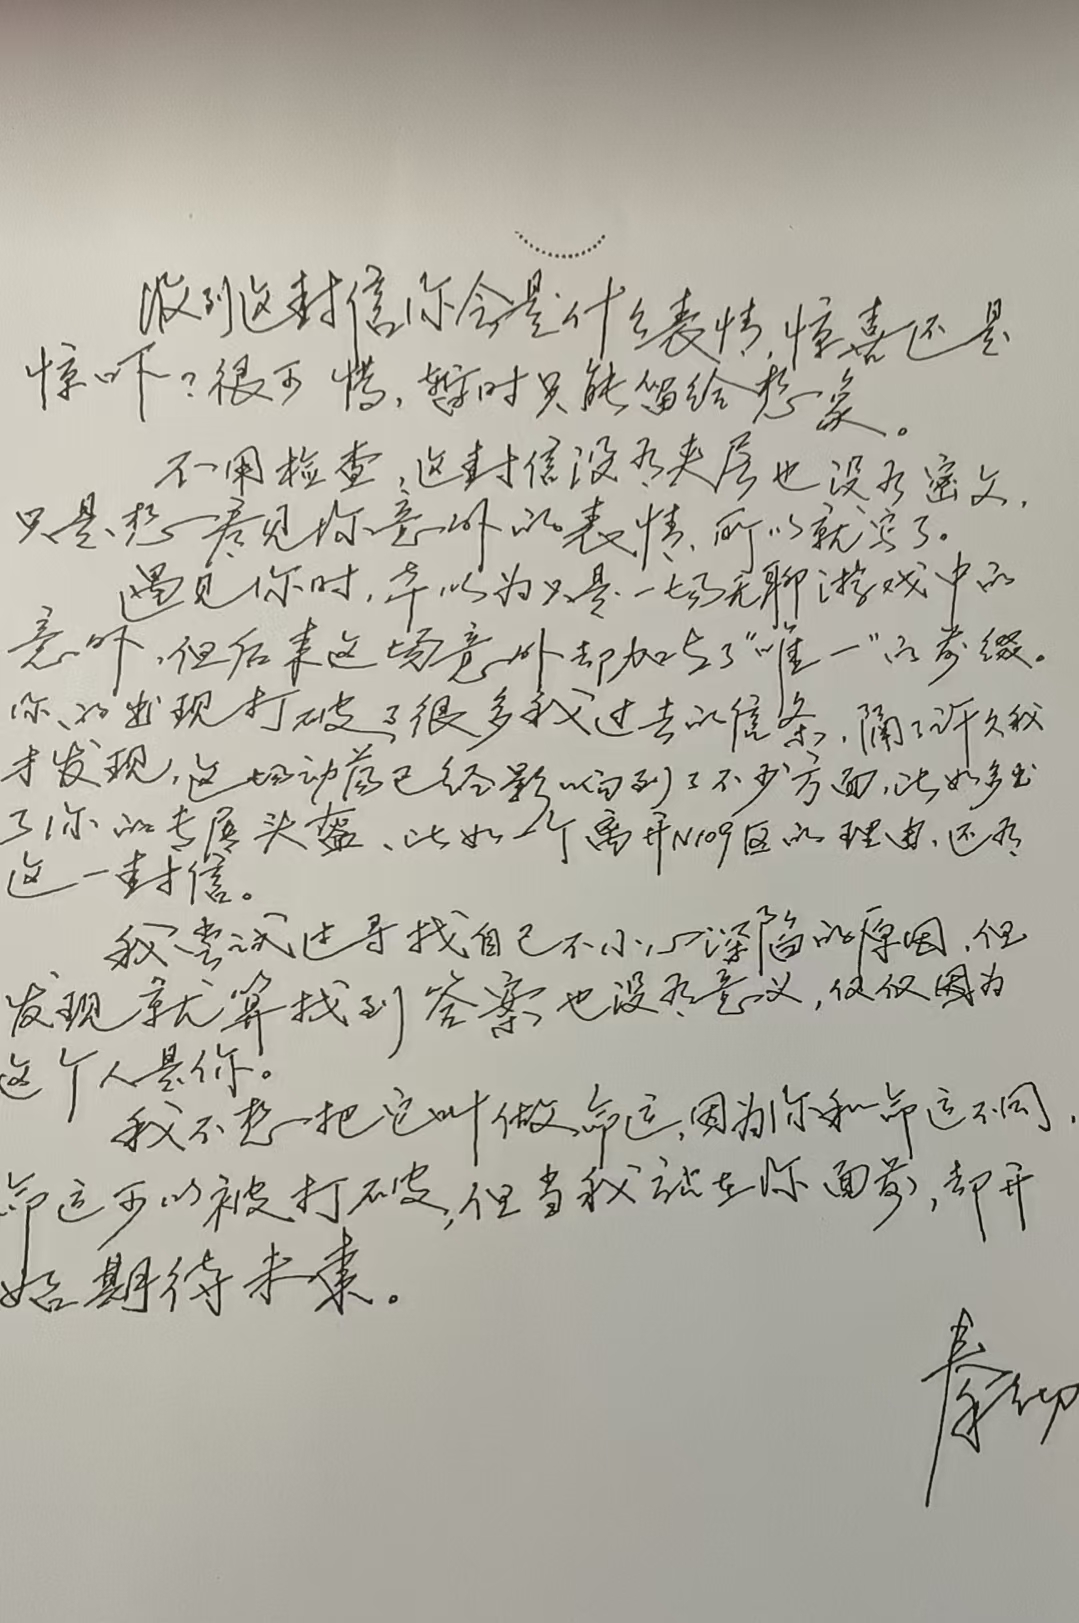 收到这封信你会是什么表情，惊喜还是
惊吓？很可惜，暂时只能留给想象。
不用检查，这封信没有夹层也没有密文，
只是想看见你意外的表情，所以就写了。
遇见你时，本以为只是一场无聊游戏中的
意外，但后来这场意外却加上了“唯一”的前缀。
你的出现打破了很多我过去的信条，隔了许久我
才发现，这场动荡已经影响到了不少方面，比如多出
了你的专属头盔、比如一个离开N109区的理由、还有
这一封信。
我尝试过寻找自己不小心深陷的原因，但
发现就算找到答案也没有意义，仅仅因为
这个人是你。
我不想把它叫做命运，因为你和命运不同，
命运可以被打破，但当我站在你面前，却开
始期待未来。
秦彻